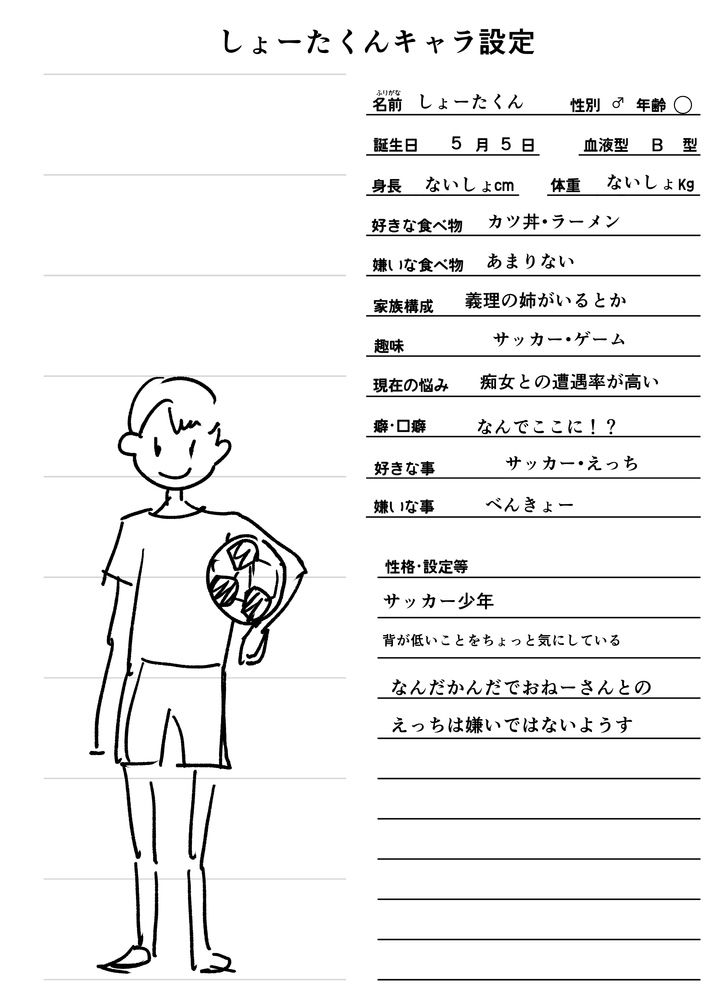 しょーたくんキャラ設定
ふりがな
名前 しょーたくん 性別 ♂ 年齢 ◯
誕生日 5 月 5 日 血液型 B 型
身長 ないしょcm 体重 ないしょKg
好きな食べ物 カツ丼・ラーメン
嫌いな食べ物 あまりない
家族構成 義理の姉がいるとか
趣味 サッカー・ゲーム
現在の悩み 痴女との遭遇率が高い
癖・口癖 なんでここに！？
好きな事 サッカー・えっち
嫌いな事 べんきょー
性格・設定等
サッカー少年
背が低いことをちょっと気にしている
なんだかんだでおねーさんとの
えっちは嫌いではないようす